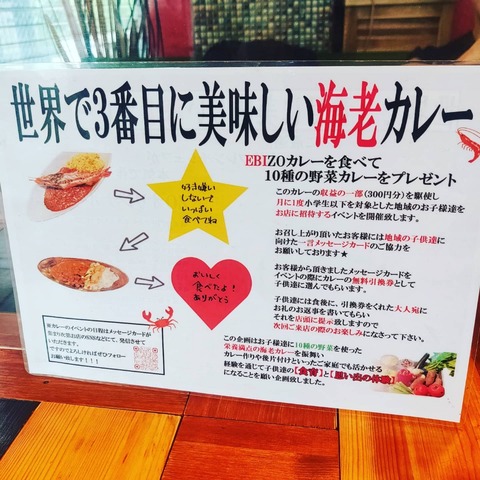 世界で3番目に美味しい海老カレー
EBIZOカレーを食べて
10種の野菜カレーをプレゼント
このカレーの収益の一部（300円分）を駆使し
月に1度小学生以下を対象とした地域のお子様達を
お店に招待するイベントを開催致します。
お召し上がり頂いたお客様には地域の子供達に
向けた一言メッセージカードのご協力を
お願いしております★
お客様から頂きましたメッセージカードを
イベントの際にカレーの無料引換券として
子供達に選んでもらいます。
子供達には食後に、引換券をくれた大人宛に
お礼のお返事を書いてもらい
それを店頭に提示致しますので
次回ご来店の際のお楽しみになさって下さい。
この企画はお子様達に10種の野菜を使った
栄養満点の海老カレーを振舞い
カレー作りや後片付けといったご家庭でも活かせる
経験を通じて子供達の【食育】と【思い出の体験】
になることを願い企画しました。
好き嫌い
しないで
いっぱい
食べてね
おいしく
食べたよ!
ありがとう
いただきます。
お願い致します!!!